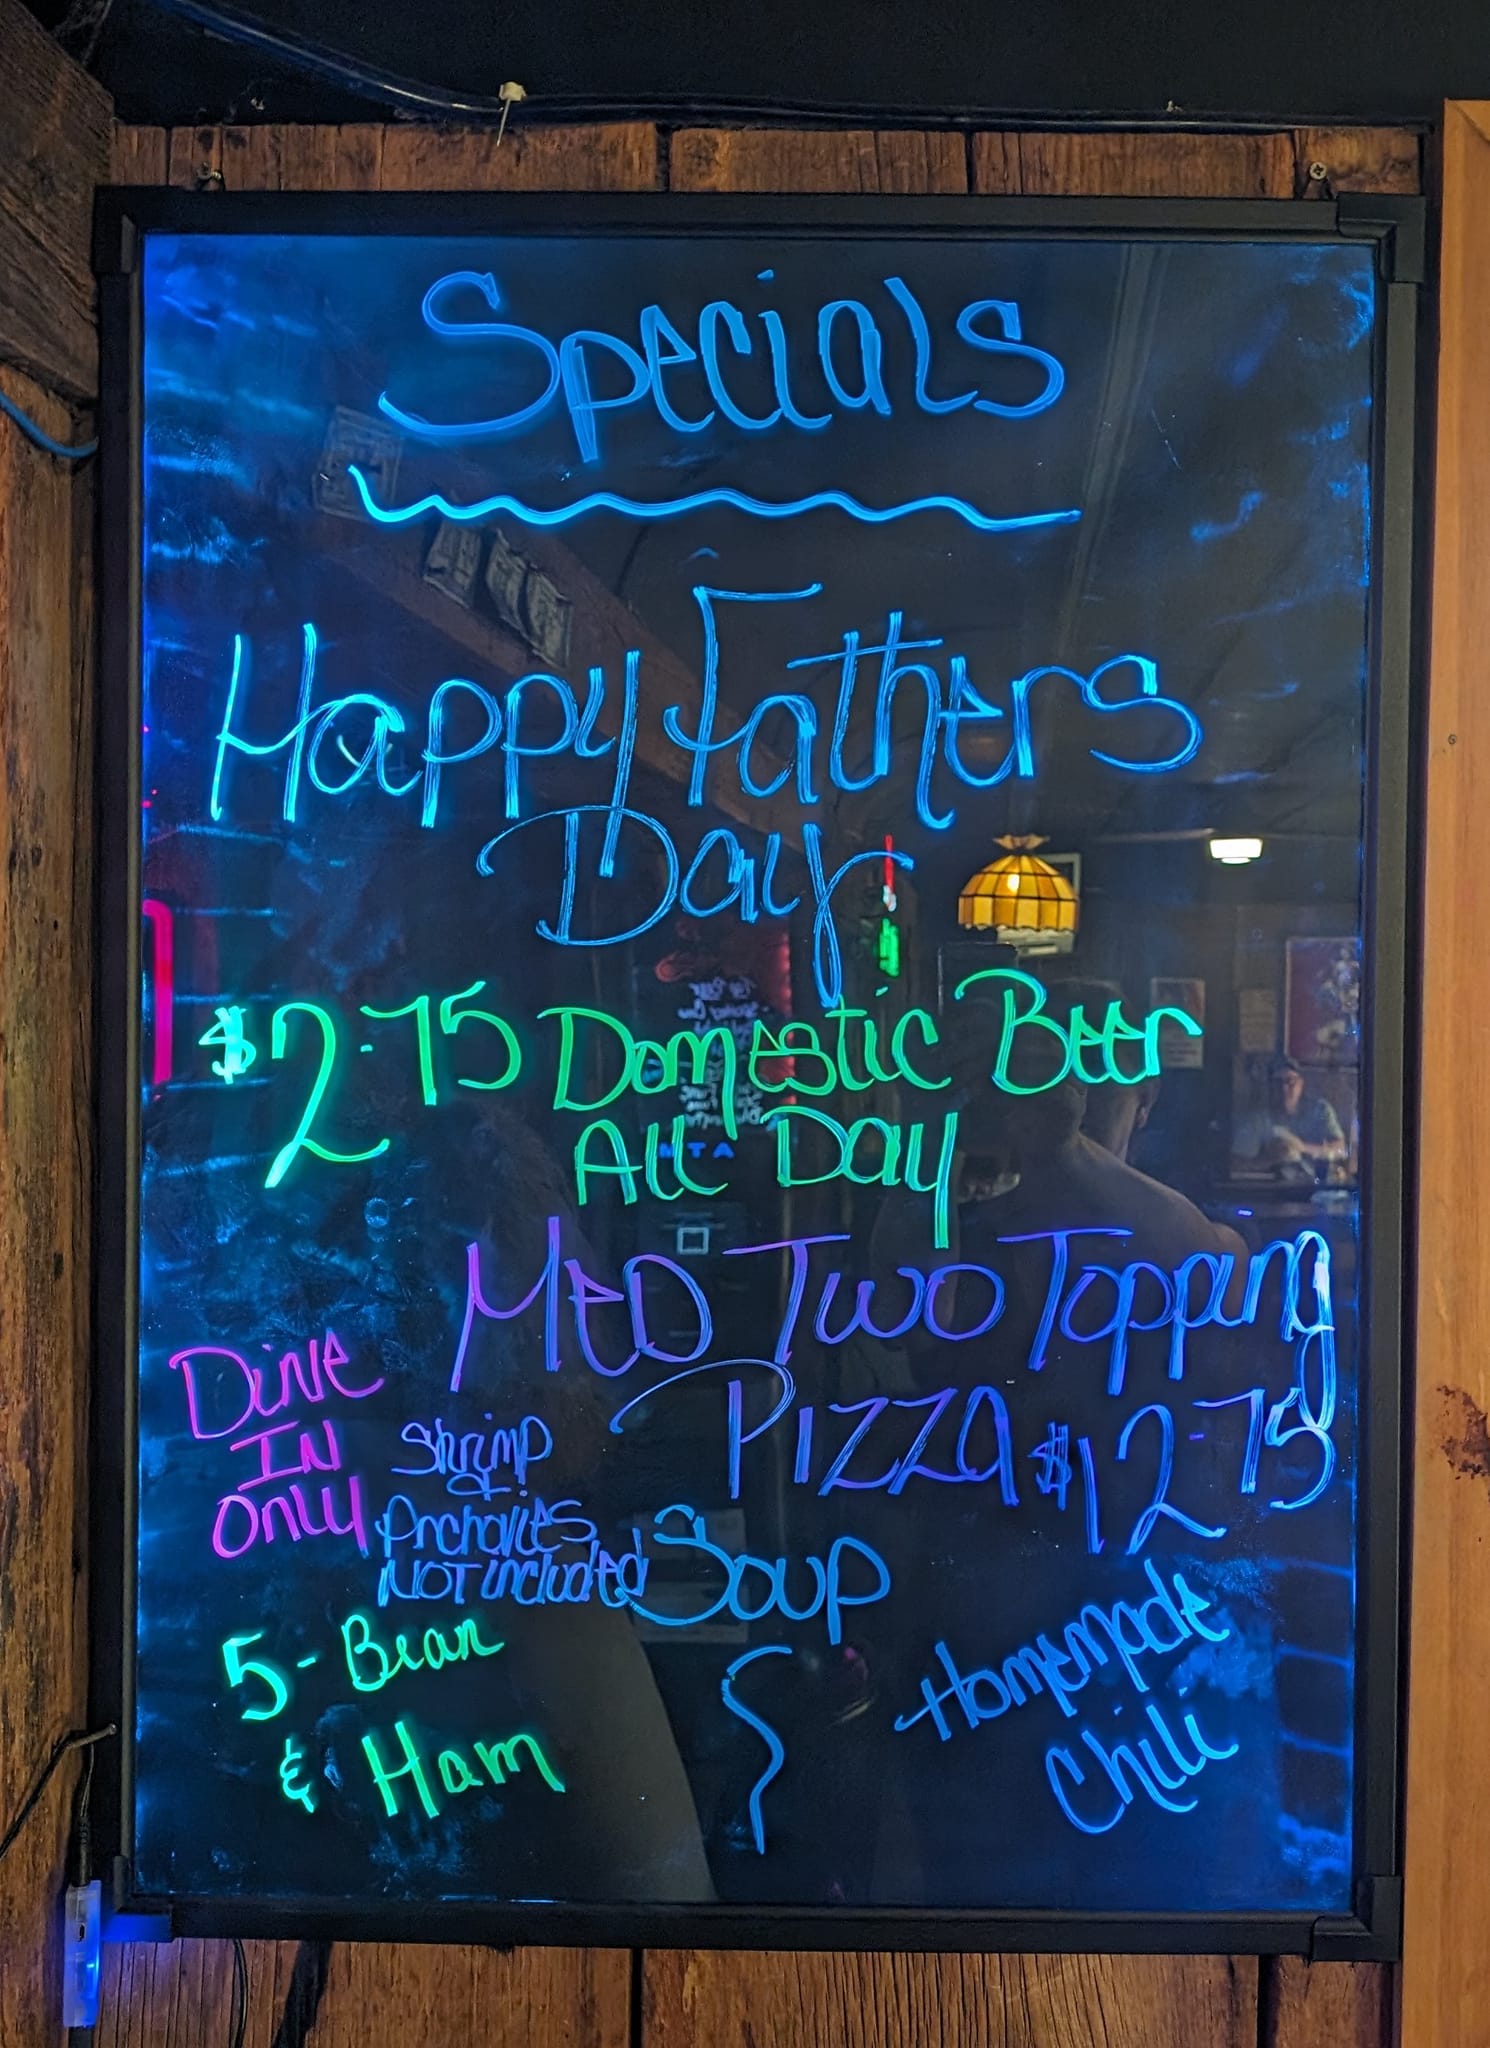 Specials
Happy Fathers
Day
$2.75 Domestic Beer
All Day
Med Two Topping
Pizza $12.75
Dine
In
Only
Shrimp
&
Anchovies
Not included
Soup
5-Bean
& Ham
Homemade
Chili